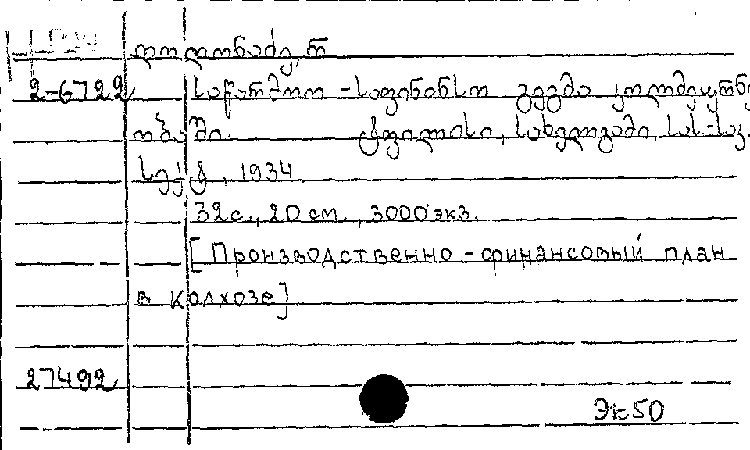 დოლონაძე, რ
2-6722 საწარმოო-საფინანსო გეგმა კოლმეურნე
ობაში. ტფილისი, სახელგამი, სას.-სა.
სექტ., 1934
32с., 20 см., 3000 экз.
[Производственно-финансовый план
в колхозе]
27492
Эк50